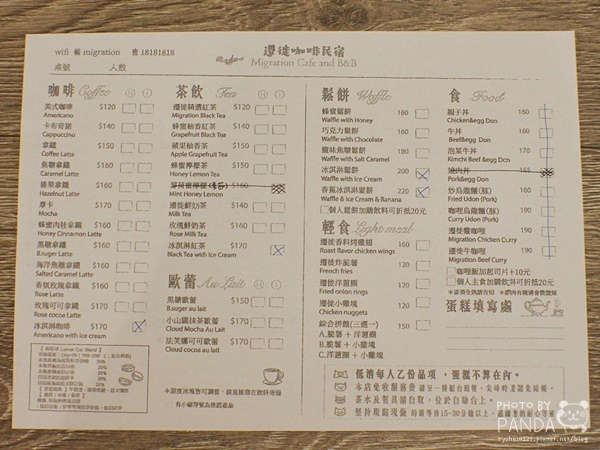 wifi 帳 migration 密 18181818
遷徙咖啡民宿
Migration Cafe and B&B
桌號 人數
咖啡 Coffee
美式咖啡 $120
Americano
卡布奇諾 $140
Cappuccino
拿鐵 $150
Coffee Latte
焦糖拿鐵 $160
Caramel Latte
榛果拿鐵 $160
Hazelnut Latte
摩卡 $170
Mocha
蜂蜜肉桂拿鐵 $160
Honey Cinnamon Latte
黑糖拿鐵 $160
B.suger Latte
海洋焦糖拿鐵 $160
Salted Caramel Latte
香氛玫瑰拿鐵 $160
Rose Latte
玫瑰可可拿鐵 $170
Rose cocoa Latte
冰淇淋咖啡 $170
Americano with ice-cream
茶飲 Tea
遷徙精選紅茶 $120
Migration Black Tea
蜂蜜柚香紅茶 $140
Grapefruit Black Tea
蘋果柚香茶 $150
Apple Grapefruit Tea
蜂蜜檸檬茶 $150
Honey Lemon Tea
$160
Mint Honey Lemon
遷徙鮮奶茶 $140
Milk Tea
玫瑰鮮奶茶 $160
Rose Milk Tea
冰淇淋紅茶 $170
Black Tea with Ice cream
歐蕾 Au Lait
黑糖歐蕾 $150
B.suger au lait
小山鋪抹茶歐蕾 $170
Cloud Mocha Au Lait
法芙娜可可歐蕾 $170
Cloud cocoa au lait
*甜度冰塊皆可調整,請直接寫在飲料旁邊
有小貓符號為推薦產品
鬆餅 Waffle
蜂蜜鬆餅 160
Waffle with Honey
巧克力鬆餅 160
Waffle with Chocolate
鹽味焦糖鬆餅 160
Waffle with Salt Caramel
冰淇淋鬆餅 200
Waffle with Ice Cream
香蕉冰淇淋鬆餅 220
Waffle & Ice Cream & Banana
個人鬆餅加購飲料可折抵20元
輕食 Light meal
遷徙香料烤雞翅 160
Roast flavor chicken wings
遷徙炸薯條 120
French fries
遷徙洋蔥圈 120
Fried onion rings
遷徙小雞塊 120
Chicken nuggets
綜合拼盤(三選一) 150
A.脆薯+洋蔥圈
B.脆薯+小雞塊
C.洋蔥圈+小雞塊
食 Food
親子丼 160
Chicken&egg Don
牛丼 160
Beef&egg Don
泡菜牛丼 170
Kimchi Beef&egg Don
燒肉丼 155
Pork&egg Don
炒烏龍麵(豚) 160
Fried Udon (Pork)
咖哩烏龍麵(豚) 160
Curry Udon (Pork)
遷徙雞咖哩 160
Migration Chicken Curry
遷徙牛咖哩 160
Migration Beef Curry
咖哩飯加起司片+10元
個人主食加購飲料可折抵20元
蛋糕填寫處
低消每人乙份品項,蛋糕不算在內。
本店免收服務費
茶水及餐具請自取,位於自助台上。
堅持現點現做 約需等待15-30分鐘以上,
PHOTO BY
PANDA